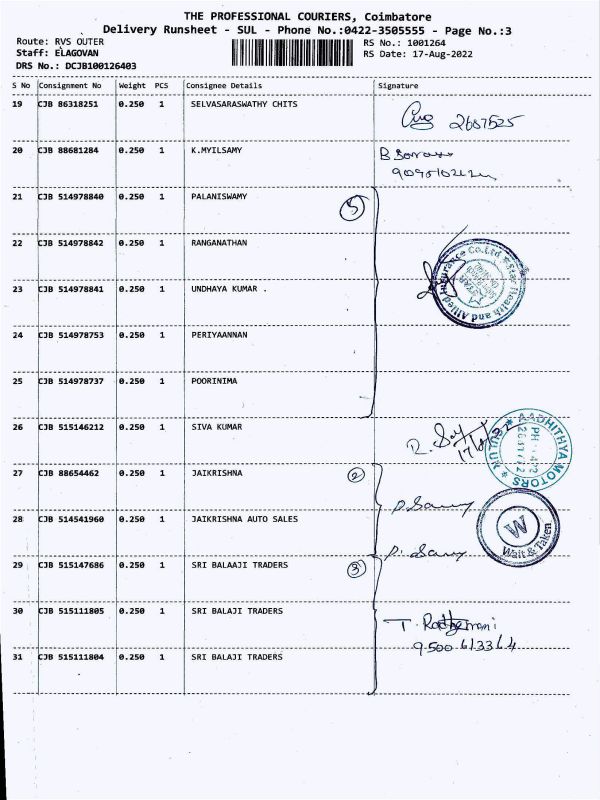 THE PROFESSIONAL COURIERS, Coimbatore
Delivery Runsheet - SUL - Phone No.:0422-3505555 - Page No.:3
Route: RVS OUTER RS No.: 1001264
Staff: ELAGOVAN RS Date: 17-Aug-2022
DRS No.: DCJB100126403
S No Consignment No Weight PCS Consignee Details Signature
19 CJB 86318251 0.250 1 SELVASARASWATHY CHITS
2687525
20 CJB 88681284 0.250 1 K.MYILSAMY
21 CJB 514978840 0.250 1 PALANISWAMY
5
22 CJB 514978842 0.250 1 RANGANATHAN
23 CJB 514978841 0.250 1 UNDHAYA KUMAR .
Star Health and Allied Insurance Co.Ltd
24 CJB 514978753 0.250 1 PERIYAANNAN
25 CJB 514978737 0.250 1 POORINIMA
26 CJB 515146212 0.250 1 SIVA KUMAR
AADHITHYA MOTORS
SULUR
27 CJB 88654462 0.250 1 JAIKRISHNA 2
28 CJB 514541960 0.250 1 JAIKRISHNA AUTO SALES
W
Wait & Taken
29 CJB 515147686 0.250 1 SRI BALAAJI TRADERS 3
30 CJB 515111805 0.250 1 SRI BALAJI TRADERS
9500613364
31 CJB 515111804 0.250 1 SRI BALAJI TRADERS